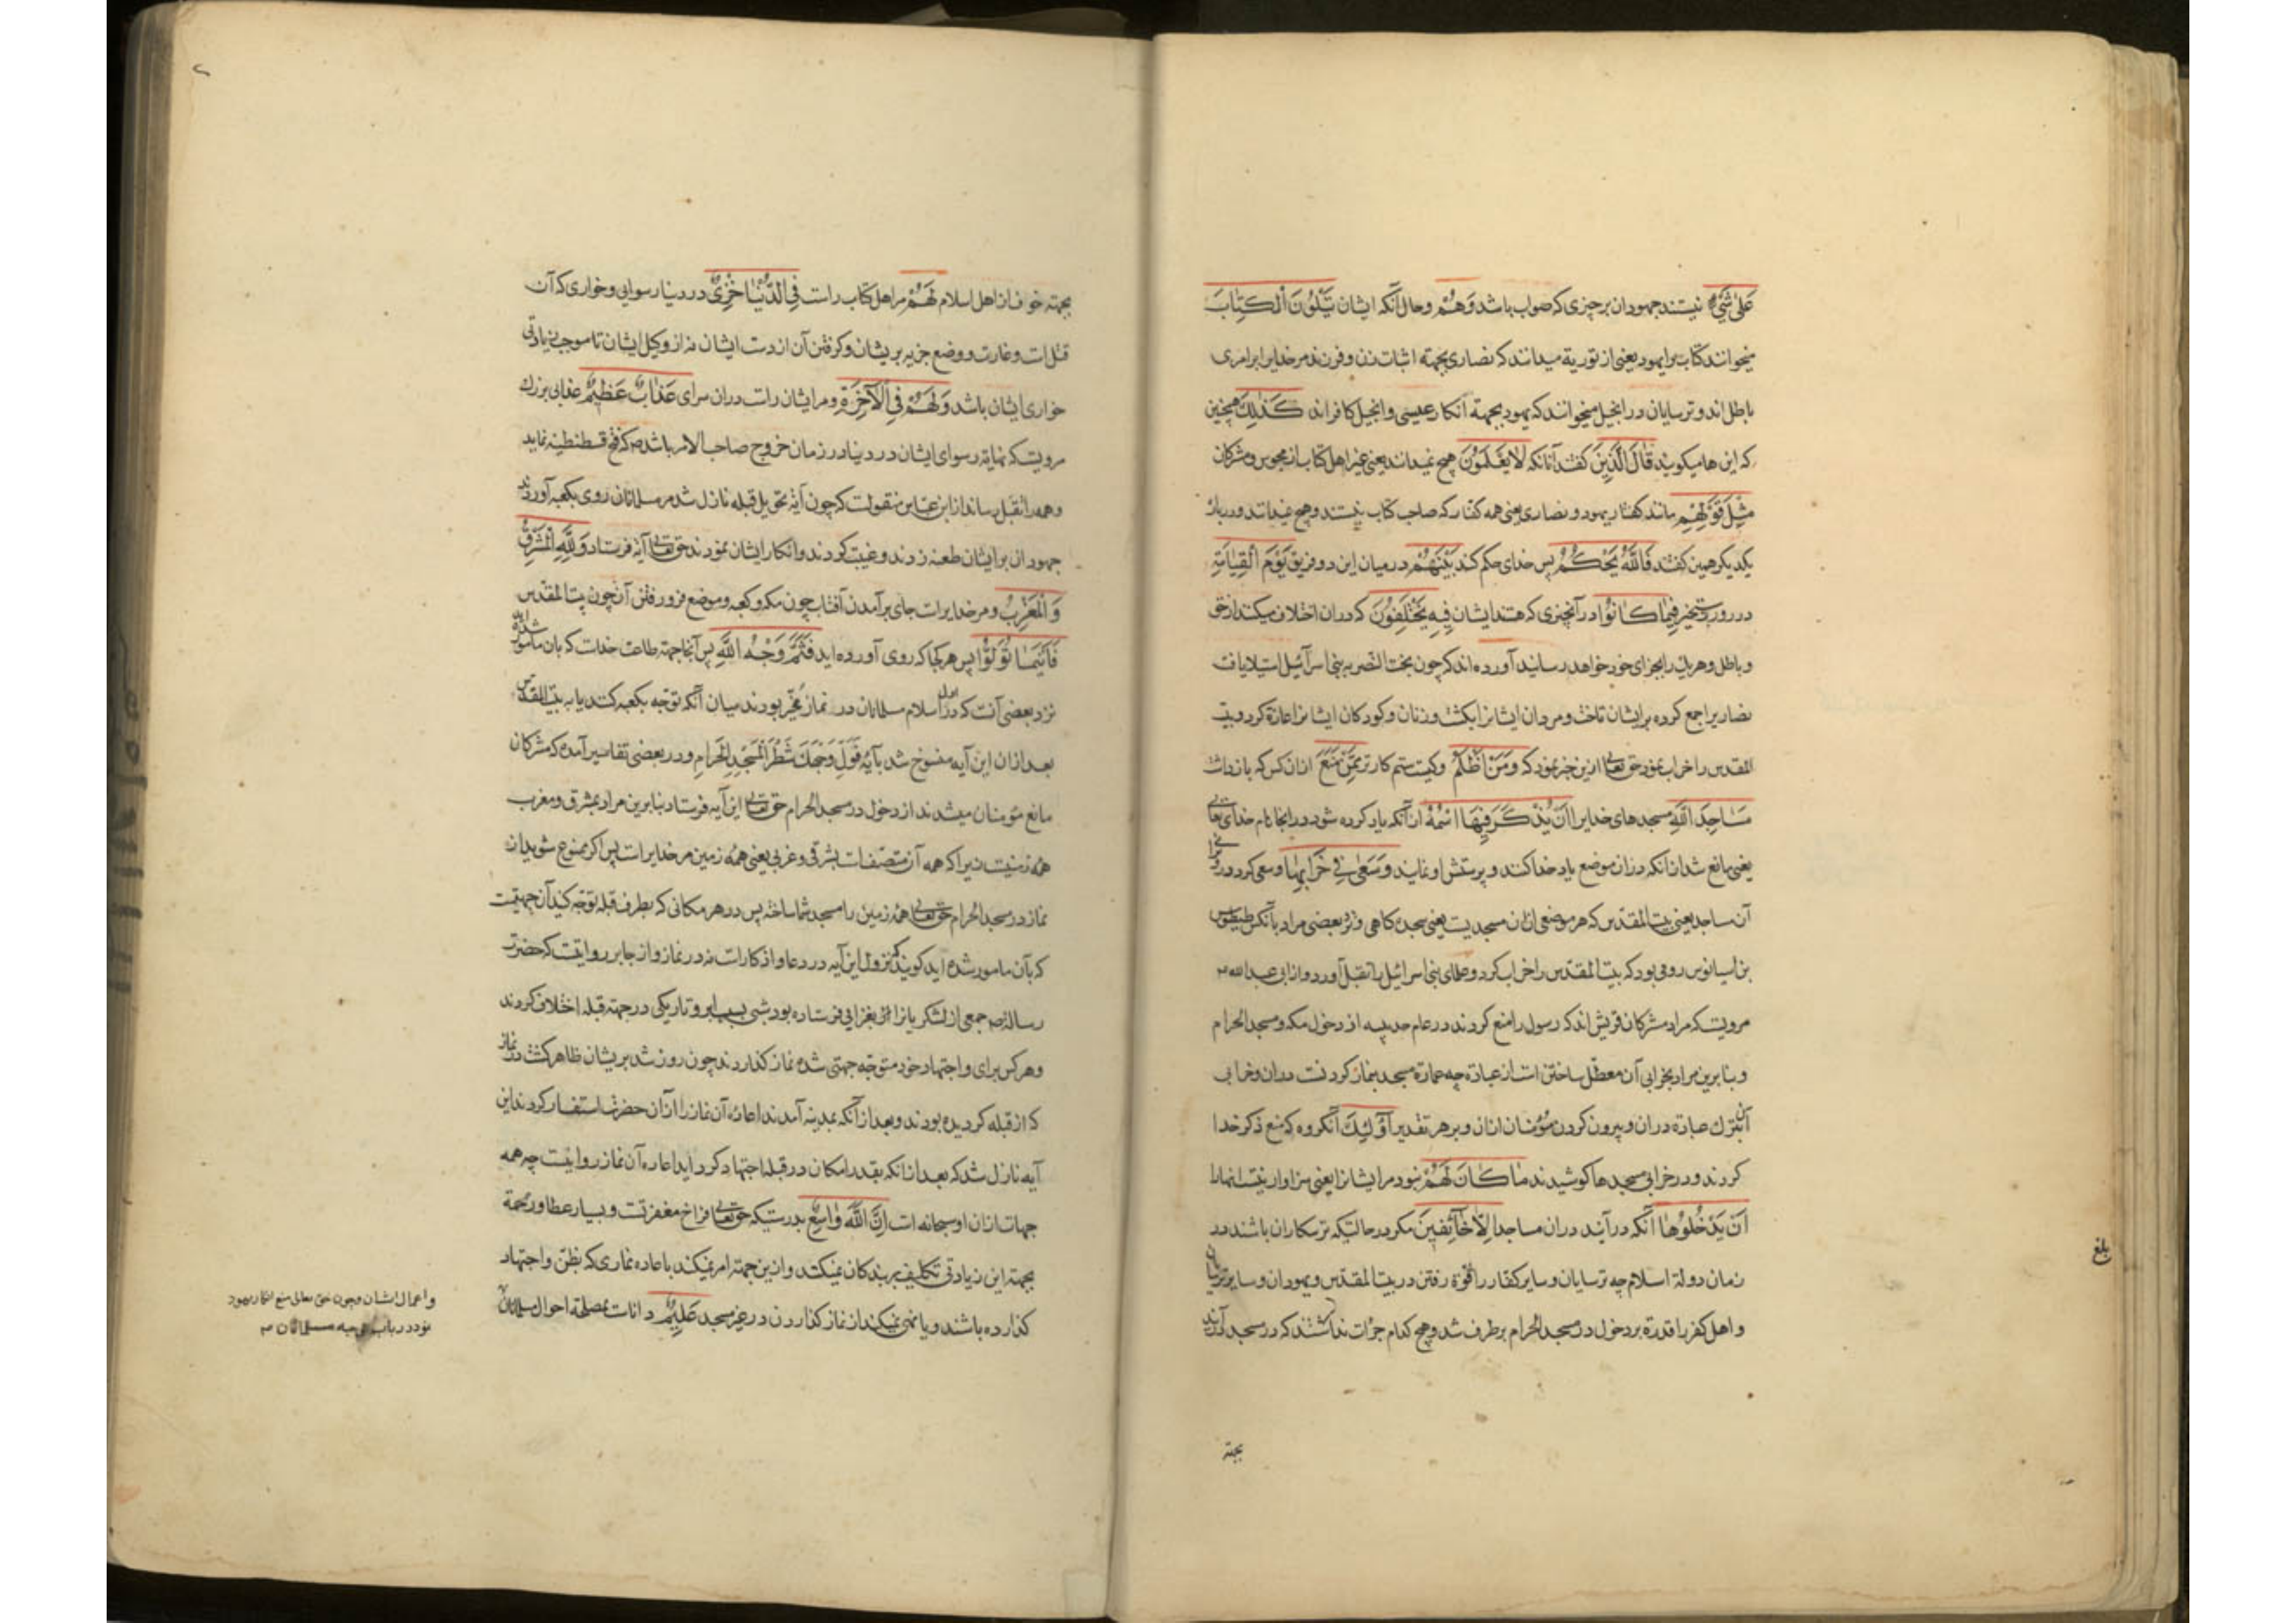 عَلىٰ شَىْءٍ نیستند جهودان بر چیزی که صواب باشد وَهُمْ وحال آنکه ایشان یَتْلُونَ الْکِتابَ
میخوانند کتاب برا یهود یعنی از توریة میدانند که نصاری بجهته اثبات زن و فرزند مر خدایرا برامری
باطل اند و ترسایان در انجیل میخوانند که یهود بجهته انکار عیسی و انجیل کافراند کَذٰلِکَ همچنین
که این ها میکویند قالَ الَّذینَ کفتند آنانکه لا یَعْلَمُونَ هیچ نمیدانند یعنی غیر اهل کتاب از مجوس و مشرکان
مِثْلَ قَوْلِهِمْ مانند کفتار یهود و نصاری یعنی همه کفتار که صاحب کتاب نیستند و هیچ نمیدانند و درباره
یکدیکر همین کفتند فَاللّٰهُ یَحْکُمُ پس خدای حکم کند بَیْنَهُمْ در میان این دو فریق یَوْمَ الْقِیامَةِ
در روز رستخیز فِیما کانُوا در آنچیزی که هستند ایشان فِیهِ یَخْتَلِفُونَ که دران اختلاف میکنند از حق
و باطل و هر یك را بجزای خود خواهد رسانید آورده اند که چون بخت النصر به بنی اسرآئیل استیلا یافت
نصاریرا جمع کرده بر ایشان تاخت و مردان ایشانرا بکشت و زنان و کودکان ایشانرا غارة کرد و بیت
المقدس را خراب نمود حق تعالی ازین خبر نمود که وَمَنْ اَظْلَمُ وکیست ستم کارتر مِمَّنْ مَنَعَ ازان کس که بازداشت
مَساجِدَ اللّٰهِ مسجدهای خدایرا اَنْ یُذْکَرَ فِیهَا اسْمُهُ ازآنکه یاد کرده شود در انجا نام خدای تعالی
یعنی مانع شد ازانکه دران موضع یاد خدا کنند و پرستش او نمایند وَسَعىٰ فِی خَرابِها وسعی کرد در خرابی
آن مساجد یعنی بیت المقدس که هر موضعی ازان مسجدیست یعنی سجده کاهی و نزد بعضی مراد بآنکس طیطوس
بن اسیانوس رومی بود که بیت المقدس را خراب کرد و علمای بنی اسرائیل را بقتل آورد و از ابی عبدالله
مرویست که مراد مشرکان قریش اند که رسول را منع کردند در عام حدیبیه از دخول مکه و مسجد الحرام
و بنابرین مراد بخرابی آن معطل ساختن است از عبادة چه عمارة مسجد بنماز کردنست دران و خرابی
آن بترك عبادة دران و بیرون کردن مؤمنان ازان و بر هر تقدیر اُولٰئِکَ آنکروه که منع ذکر خدا
کردند و در خرابی مسجدها کوشیدند ما کانَ لَهُمْ نبود مر ایشانرا یعنی سزاوار نیست انهارا
اَنْ یَدْخُلُوها آنکه درآیند دران مساجد اِلّا خائِفِینَ مکر در حالتیکه ترسکاران باشند در
زمان دولة اسلام چه ترسایان و سایر کفار را قوّة رفتن در بیت المقدس و یهودان و سایر ترسایان
و اهل کفر را قدرة بر دخول در مسجد الحرام بر طرف شد و هیچ کدام جرأت نداشتند که در مسجد درآیند
بلغ
بجهته
بجهته خوف از اهل اسلام لَهُمْ مر اهل کتاب راست فِی الدُّنْیا خِزْیٌ در دنیا رسوایی و خواری که آن
قتل است و غارت و وضع جزیه بریشان و کرفتن آن از دست ایشان نه از وکیل ایشان تا موجب زیادتی
خواری ایشان باشد وَلَهُمْ فِی الْآخِرَةِ و مر ایشان راست دران سرای عَذابٌ عَظِیمٌ عذابی بزرك
مرویست که نهایة رسوای ایشان در دنیا در زمان خروج صاحب الامر باشد که فتح قسطنطنیه نماید
و همه را بقتل رساند از ابن عباس منقولست که چون آیة تحویل قبله نازل شد مر مسلمانان روی بکعبه آوردند
جهودان بر ایشان طعنه زدند و غیبت کردند و انکار ایشان نمودند حق تعالی آیه فرستاد وَلِلّٰهِ الْمَشْرِقُ
وَالْمَغْرِبُ و مر خدایراست جای برآمدن آفتاب چون مکه و کعبه و موضع فرو رفتن آن چون بیت المقدس
فَاَیْنَما تُوَلُّوا پس هر کجا که روی آورده اید فَثَمَّ وَجْهُ اللّٰهِ پس آنجا جهة طاعت خداست که بان مامور شده اید
نزد بعضی آنست که در اول اسلام مسلمانان در نماز مخیّر بودند میان آنکه توجه بکعبه کنند یا به بیت المقدس
بعد ازان این آیه منسوخ شد بآیة فَوَلِّ وَجْهَكَ شَطْرَ الْمَسْجِدِ الْحَرامِ و در بعضی تفاسیر آمده که مشرکان
مانع مؤمنان میشدند از دخول در مسجد الحرام حق تعالی این آیه فرستاد بنابرین مراد بمشرق و مغرب
همه زمینست زیرا که همه آن متصفست بشرقی و غربی یعنی همه زمین مر خدایراست پس اکر ممنوع شوید از
نماز در مسجد الحرام حق تعالی همه زمین را مسجد شما ساخته پس در هر مکانی که بطرف قبله توجه کنید آن جهتیست
که بآن مامور شده اید کویند نزول این آیه در دعا و اذکار است نه در نماز و از جابر روایتست که حضرت
رسالة جمعی از لشکریانرا بغزایی فرستاده بود شبی بسبب ابر و تاریکی در جهة قبله اختلاف کردند
و هر کس برای و اجتهاد خود متوجه جهتی شده نماز کذاردند چون روز شد بریشان ظاهر کشت که در نماز
که از قبله کردیده بودند و بعد از آنکه بمدینه آمدند اعاده آن نماز را از آن حضرت استفسار کردند این
آیه نازل شد که بعد ازانکه بقدر امکان در قبله اجتهاد کرده اید اعاده آن نماز روا نیست چه همه
جهات ازان او سبحانه است اِنَّ اللّٰهَ واسِعٌ بدرستیکه حق تعالی فراخ مغفرتست و بسیار عطا و رحمة
بجهته این زیادتی تکلیف بر بندکان نمیکند و ازین جهة امر نمیکند باعاده نمازی که بظن و اجتهاد
کذارده باشند و یا نهی نمیکند از نماز کذاردن در غیر مسجد عَلِیمٌ داناست بمصلحة احوال مسلمانان
و اعمال ایشان و چون حق تعالی منع انکار یهود
نمود در باب قبله مسلمانان